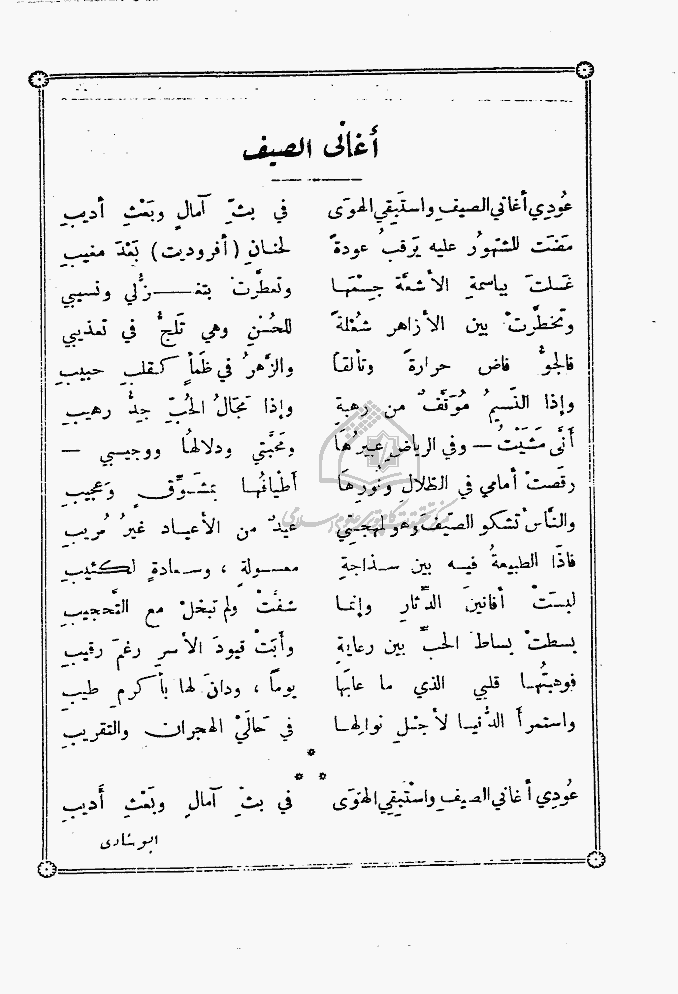 أغاني الصيف
عُودِي أغاني الصيفِ واستَبِقي الهوَى في بثِّ آمالٍ وبَعْثِ أديبِ
مَضَت الشهورُ عليه يَرقبُ عودةً لحنانِ (أفروديت) بَعْدَ مغيبِ
غسلتْ بباسمةِ الأشعَّة جِسْمَها وتعطَّرتْ بتغزُّلي ونسيبي
وتخطَّرتْ بين الأزاهر شُعْلةً للحُسْنِ وهي تَلَجُّ في تعذيبي
فالجوُّ فاض حرارةً وتألقاً والزَّهرُ في ظَمأٍ كقلبِ حبيبِ
وإذا النَّسيمُ مُوَقَّفٌ من رهبةٍ وإذا مجَالُ الحُبِّ جِدُّ رهيبِ
أنَّى مَشَيْتُ — وفي الرياضِ عبيرُهَا ومَحبَّتي ودلالهُا ووجيبي —
رقصتْ أمامي في الظلالِ ونُورِهَا أطْيافُها بمشَوِّقٍ وعَجيبِ
والنَّاسُ تشكو الصيَّف وهو لمهجتي عيدٌ من الأعيادِ غيرُ مُريبِ
فاذَا الطبيعةُ فيه بين سذاجةٍ معسولةٍ ، وسعادةٍ لكئيبِ
لبستْ أفانينَ الدِّثارِ وإنما شفَّتْ ولم تبخلْ مع التَّحجيبِ
بسطتْ بساطَ الحبِّ بين رعايةٍ وأبَتْ قيودَ الأسرِ رغمَ رقيبِ
فوهبتُها قلبي الذي ما عابَها يوماً ، ودانَ لها بأكرمِ طيبِ
واستمرأَ الدُّنيا لأجلِ نوالِها في حالَيْ الهجرانِ والتقريبِ
*
* *
عُودِي أغاني الصيفِ واسْتَبِقي الهَوَى في بثِّ آمالٍ وبَعْثِ أديبِ
ابو شادى